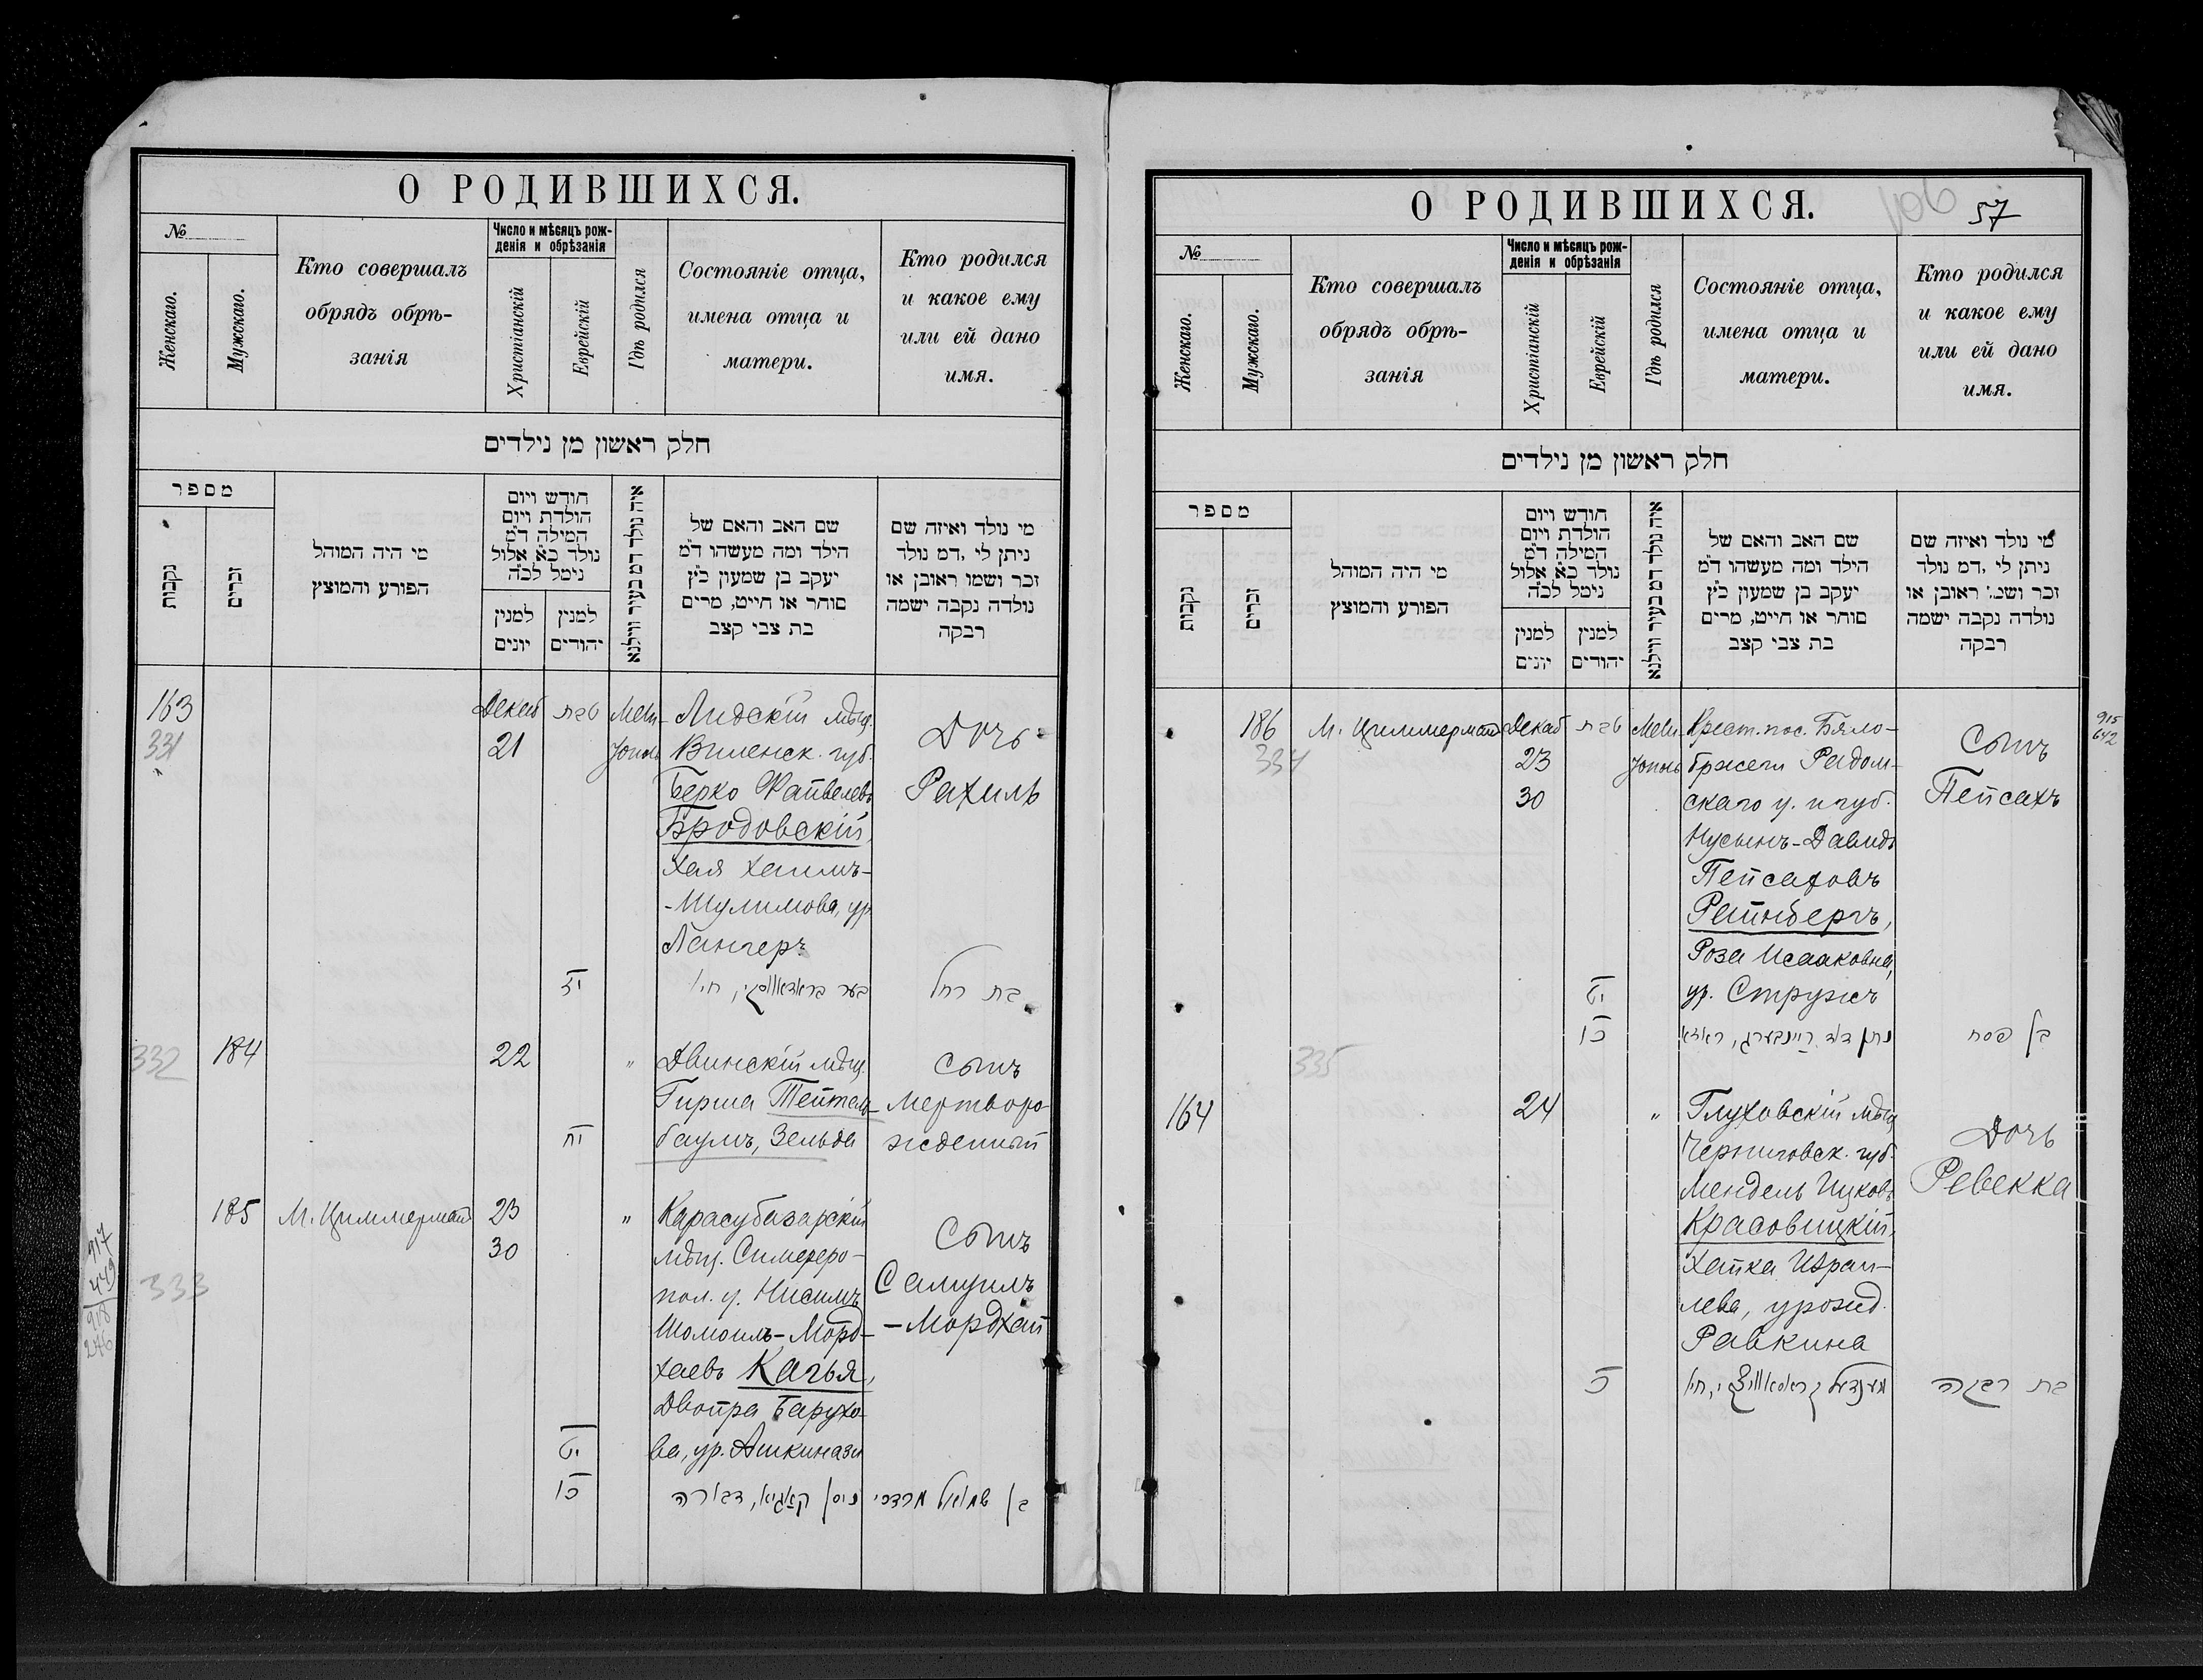 О РОДИВШИХСЯ.
№
Женскаго.
Мужскаго.
Кто совершалъ
обрядъ обрѣ-
занія
Число и мѣсяцъ рож-
денія и обрѣзанія
Христіанскій
Еврейскій
Гдѣ родился
Состояніе отца,
имена отца и
матери.
Кто родился
и какое ему
или ей дано
имя.
חלק ראשון מן נילדים
מספר
נקבות
זכרים
מי היה המוהל
הפורע והמוצץ
חודש ויום
הולדת ויום
המילה ד"מ
נולד כ"א אלול
נימל לכ"ה
למנין
יונים
למנין
יהודים
איה נולד דמ בעיר ווילנא
שם האב והאם של
הילד ומה מעשהו ד"מ
יעקב בן שמעון כ"ץ
סוחר או חייט, מרים
בת צבי קצב
מי נולד ואיזה שם
ניתן לי .דמ נולד
זכר ושמו ראובן או
נולדה נקבה ישמה
רבקה
163
331
Декаб
21
טבת
Мели-
тополь
Лидскій мѣщ.
Виленск. губ.
Берко Файвелевъ
Бродовскій,
Хая Хаимъ-
-Шулимова, ур.
Лангеръ
Дочь
Рахиль
יז
בער בראדאווסקי, חי'
בת רחל
332
184
22
"
Двинскій мѣщ.
Гирша Тейтель-
баумъ, Зельда
Сынъ
мертворо-
жденный
יח
185
М. Циммерманъ
23
30
"
Карасубазарскій
мѣщ. Симферо-
пол. у. Нисимъ
Шомоилъ-Морд-
хаевъ Качья,
Двойра Барухо-
ва, ур. Ашкинази
Сынъ
Самуилъ
-Мордхай
333
917
449
918
276
יט
כו
ניסן קאגיא, דבורה
בן שמואל מרדכי
О РОДИВШИХСЯ.
106
57
№
Женскаго.
Мужскаго.
Кто совершалъ
обрядъ обрѣ-
занія
Число и мѣсяцъ рож-
денія и обрѣзанія
Христіанскій
Еврейскій
Гдѣ родился
Состояніе отца,
имена отца и
матери.
Кто родился
и какое ему
или ей дано
имя.
חלק ראשון מן נילדים
מספר
נקבות
זכרים
מי היה המוהל
הפורע והמוצץ
חודש ויום
הולדת ויום
המילה ד"מ
נולד כ"א אלול
נימל לכ"ה
למנין
יונים
למנין
יהודים
איה נולד דמ בעיר ווילנא
שם האב והאם של
הילד ומה מעשהו ד"מ
יעקב בן שמעון כ"ץ
סוחר או חייט, מרים
בת צבי קצב
מי נולד ואיזה שם
ניתן לי .דמ נולד
זכר ושמו ראובן או
נולדה נקבה ישמה
רבקה
186
334
М. Циммерманъ
Декаб
23
30
טבת
Мели-
тополь
Крест. пос. Бяло-
бржеги Радом-
скаго у. и губ.
Нусынъ-Давидъ
Пейсаховъ
Рейнбергъ,
Роза Исааковна,
ур. Стружъ
Сынъ
Пейсахъ
915
642
יט
כו
נתן דוד ריינבערג, ראזא
בן פסח
335
164
24
"
Глуховскій мѣщ.
Черниговск. губ.
Мендель Ицковъ
Красовицкій,
Хайка Израи-
лева, урожд.
Равкина
Дочь
Ревекка
כ
מענדעל קראסאוויצקי, חי'
בת רבקה